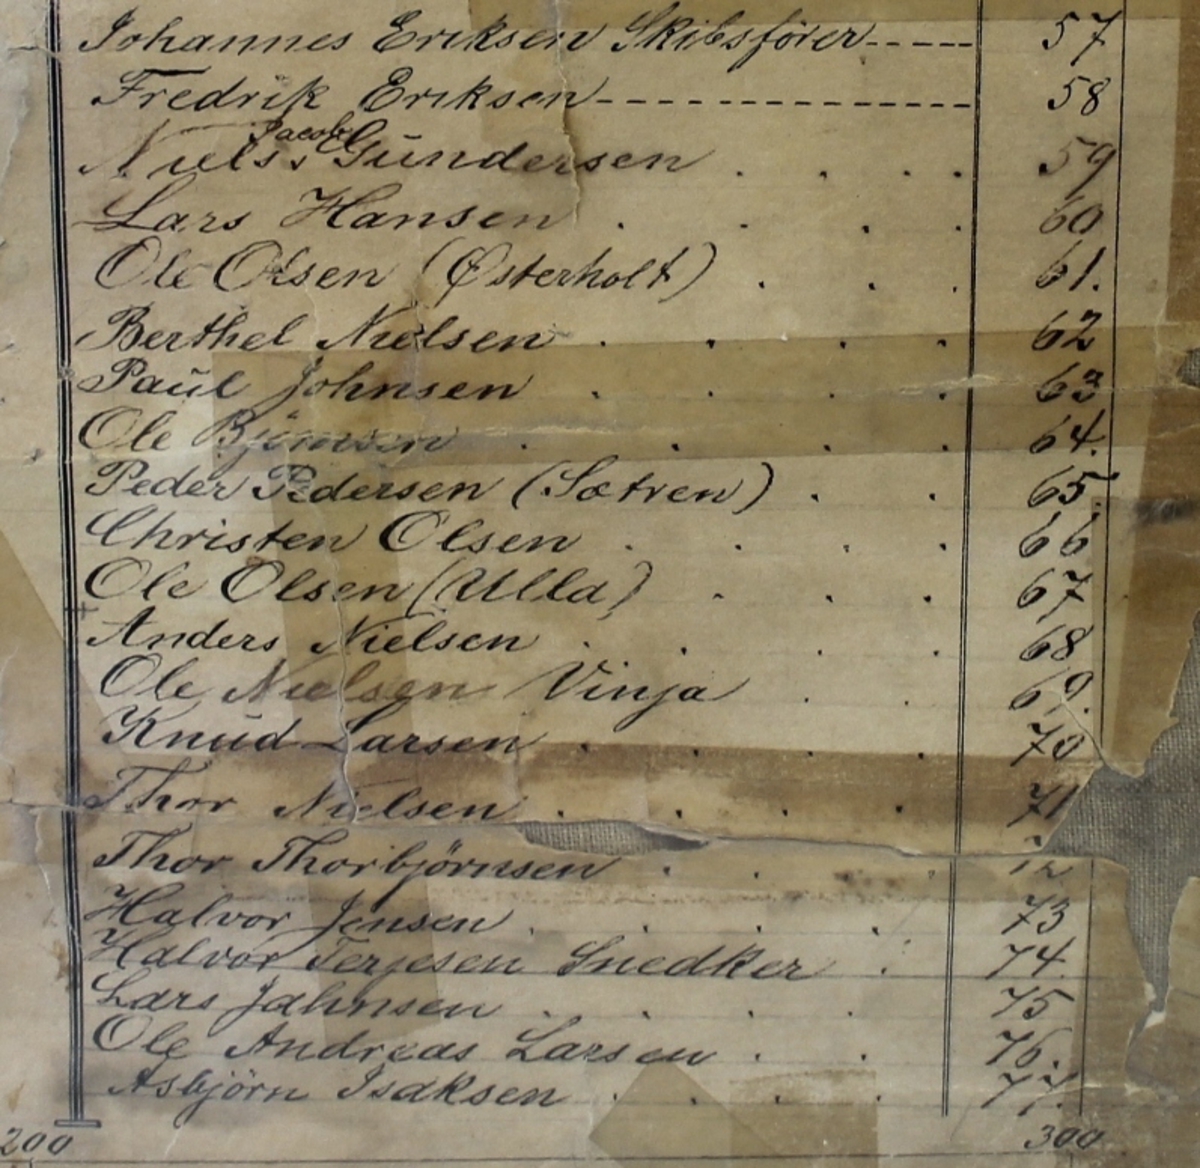 Johannes Eriksen Skibsförer ----- 57
Fredrik Eriksen --------------- 58
Niels Jacob Gundersen . . . . 59
Lars Hansen . . . . 60
Ole Olsen (Østerholt) . . . 61.
Berthel Nielsen . . . . 62
Paul Johnsen . . . . 63
Ole Björnsen . . . . 64.
Peder Pedersen (Sætren) . . 65.
Christen Olsen . . . . 66
Ole Olsen (Ulla) . . . 67
Anders Nielsen . . . . 68
Ole Nielsen Vinja . . 69.
Knud Larsen . . . . 70
Thor Nielsen . . . . 71
Thor Thorbjörnsen . . . 72
Halvor Jensen . . . . 73
Halvor Terjesen Snedker . 74.
Lars Jahnsen . . . . 75
Ole Andreas Larsen . . 76.
Asbjörn Isaksen . . . . 77.
200 300